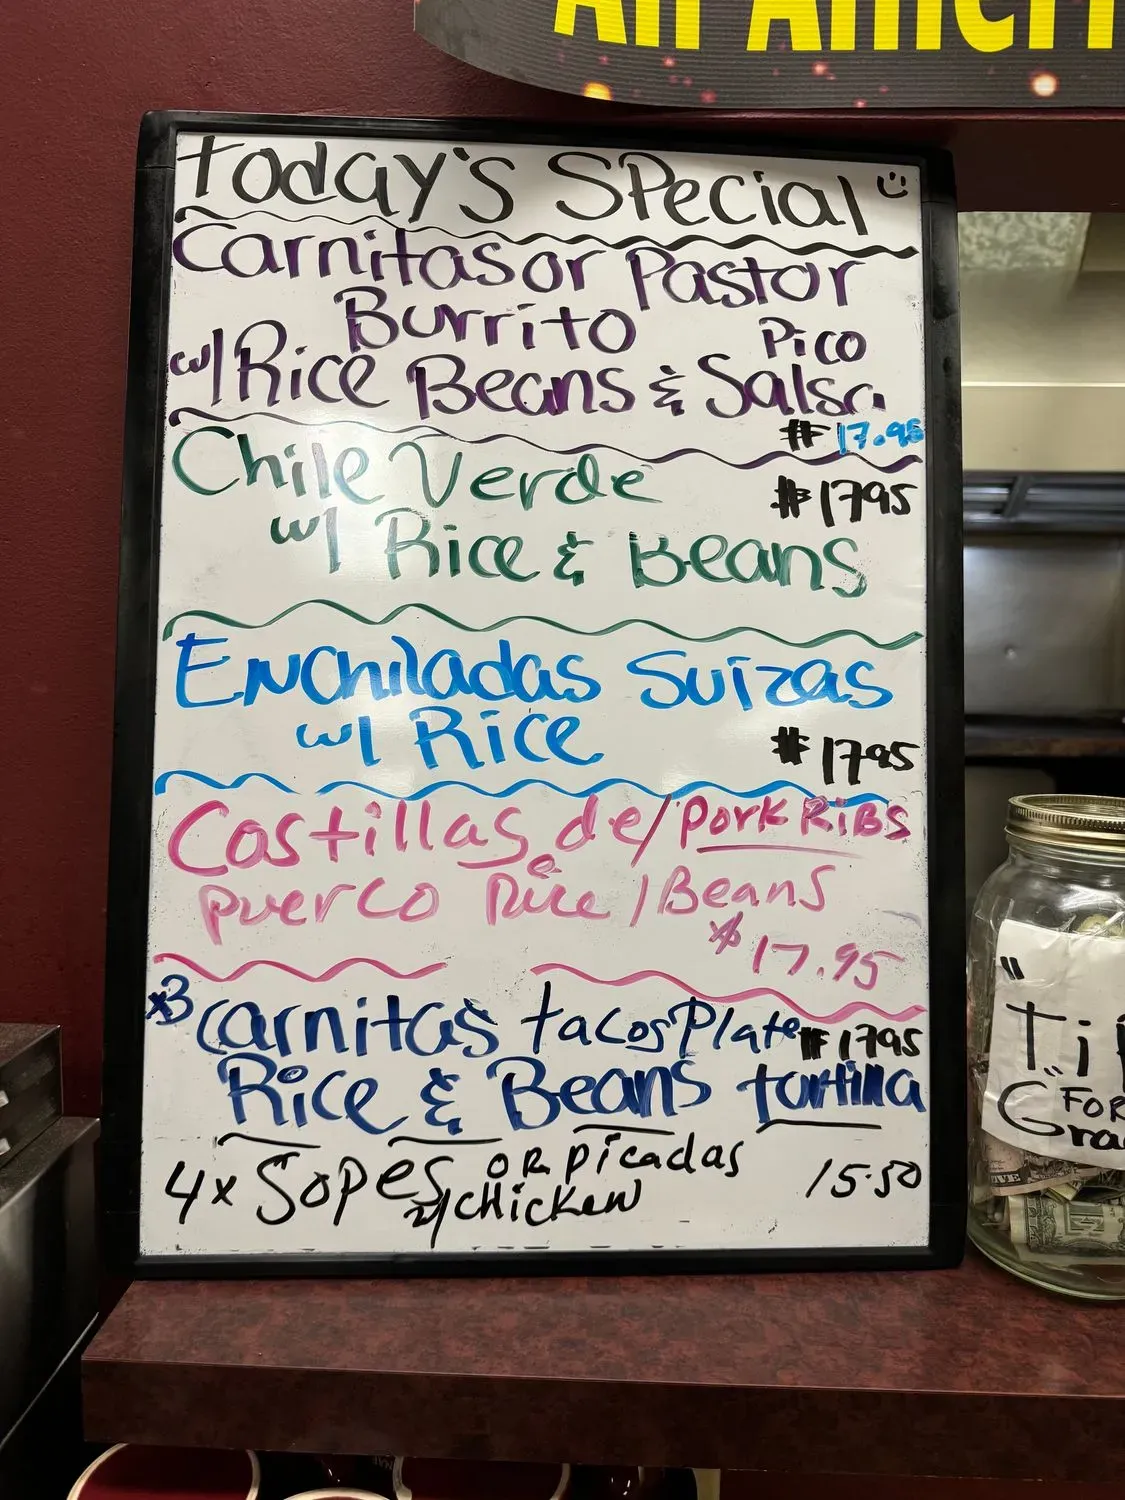 An Ameri
Today's Special
Carnitas or Pastor
Burrito
Pico
w/ Rice Beans & Salsa
$17.95
Chile Verde
$1795
w/ Rice & Beans
Enchiladas Suizas
w/ Rice
$1795
Costillas de/Pork RiBS
puerco Rice/Beans
$17.95
x3 Carnitas tacos Plate $1795
Rice & Beans tortilla
4x Sopes OR picadas 15.50
w/ CHicken
"Ti
FOR
Gra